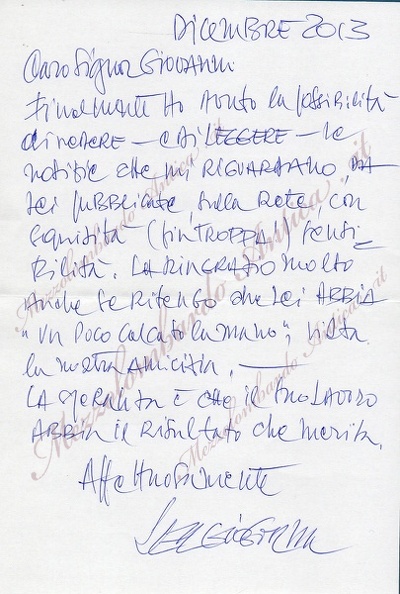 DICEMBRE 2013
Caro Signor GIOVANNI
Finalmente ho avuto la possibilità
di vedere — e di LEGGERE — le
notizie che mi RIGUARDANO, DA
Lei pubblicate, sulla Rete, con
squisita (fin TROPPA!) sensi-
bilità. LA RINGRAZIO molto
Anche se Ritengo che Lei ABBIA
"un poco calcato la mano", vista
la nostra amicizia. —
LA speranza è che il suo LAVORO
ABBIA il Risultato che merita.
Affettuosamente
MezzoLombardo Antica.it
MezzoLombardo Antica.it